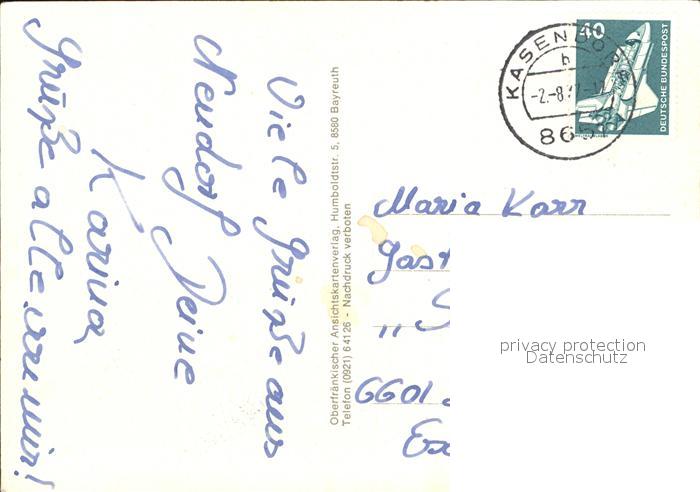 Viele Grüße aus
Neudorf Deine
Karina
Grüße alle von mir!
Oberfränkischer Ansichtskartenverlag, Humboldtstr. 5, 8580 Bayreuth
Telefon (0921) 64126 - Nachdruck verboten
KASENDORF
b
-2.-8.77-
865
40
DEUTSCHE BUNDESPOST
Maria Karr
Gast
„ S
6601
privacy protection
Datenschutz